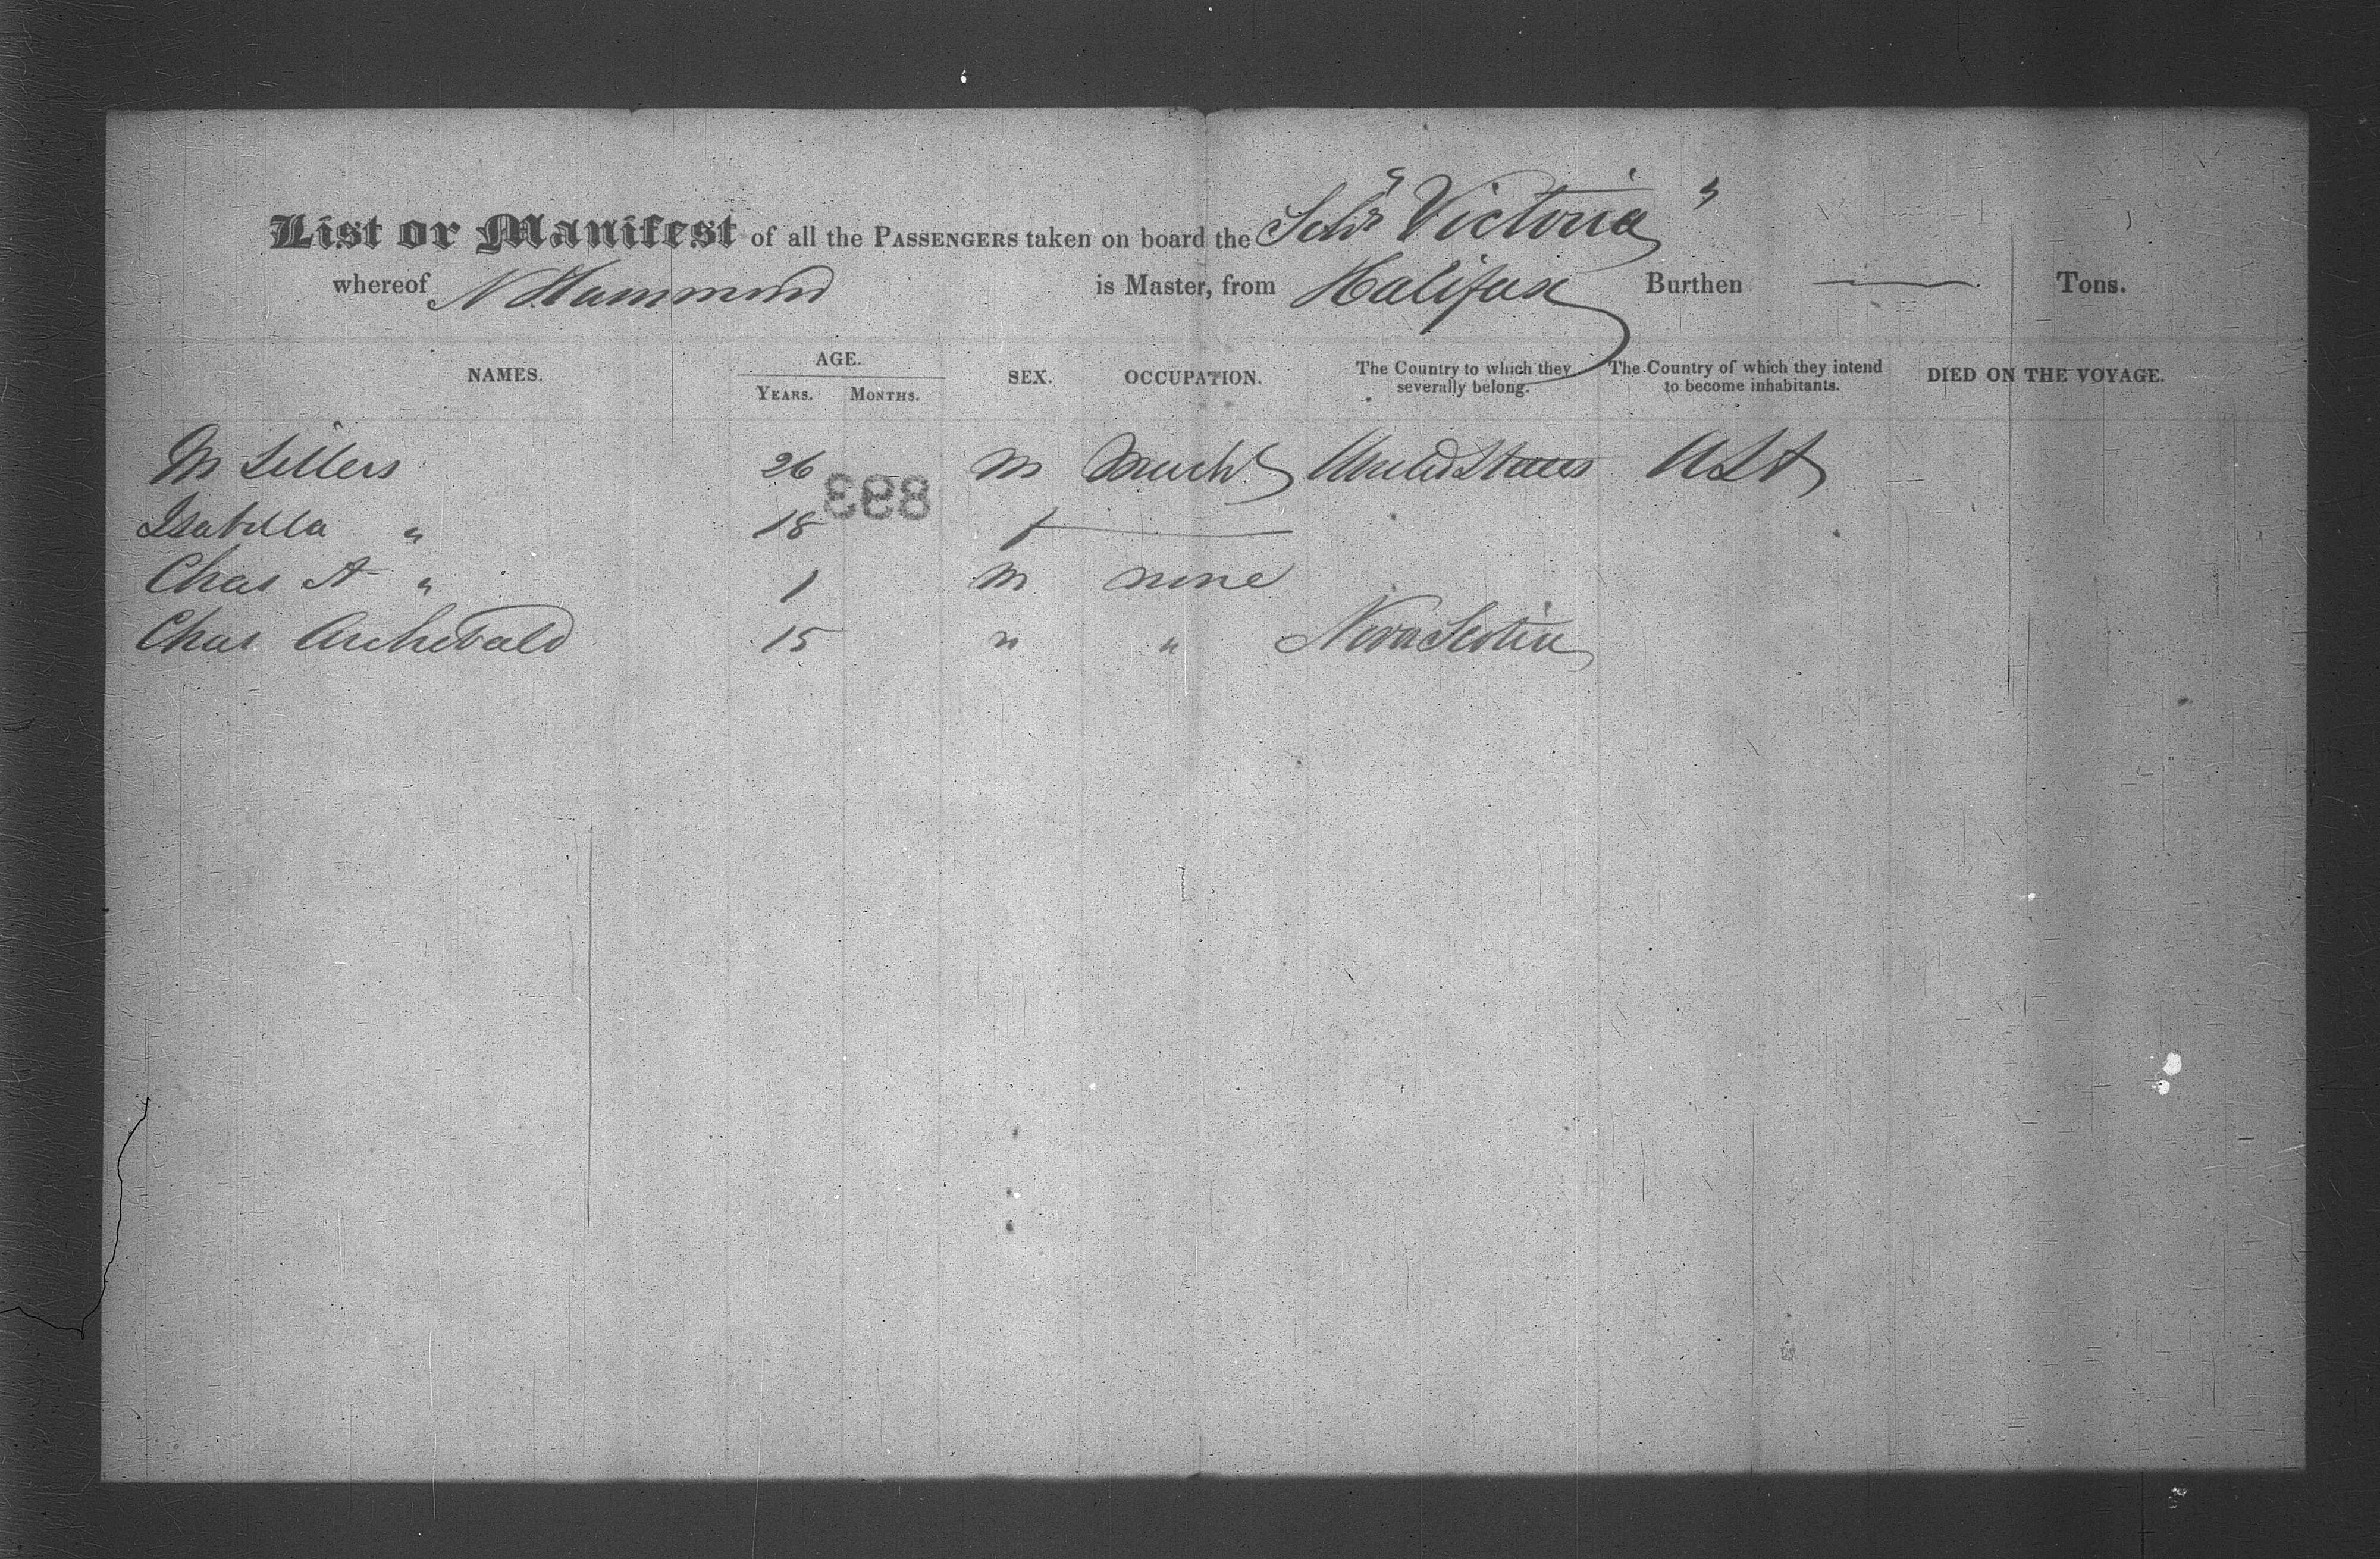 List or Manifest of all the PASSENGERS taken on board the Schr "Victoria"
whereof N Hammond is Master, from Halifax Burthen — Tons.
NAMES. AGE. SEX. OCCUPATION. The Country to which they severally belong. The Country of which they intend to become inhabitants. DIED ON THE VOYAGE.
YEARS. MONTHS.
M Sellers 26 M Mercht United States USA
893
Isabella " 18 f —
Chas A " 1 M none
Chas Archibald 15 " " Nova Scotia